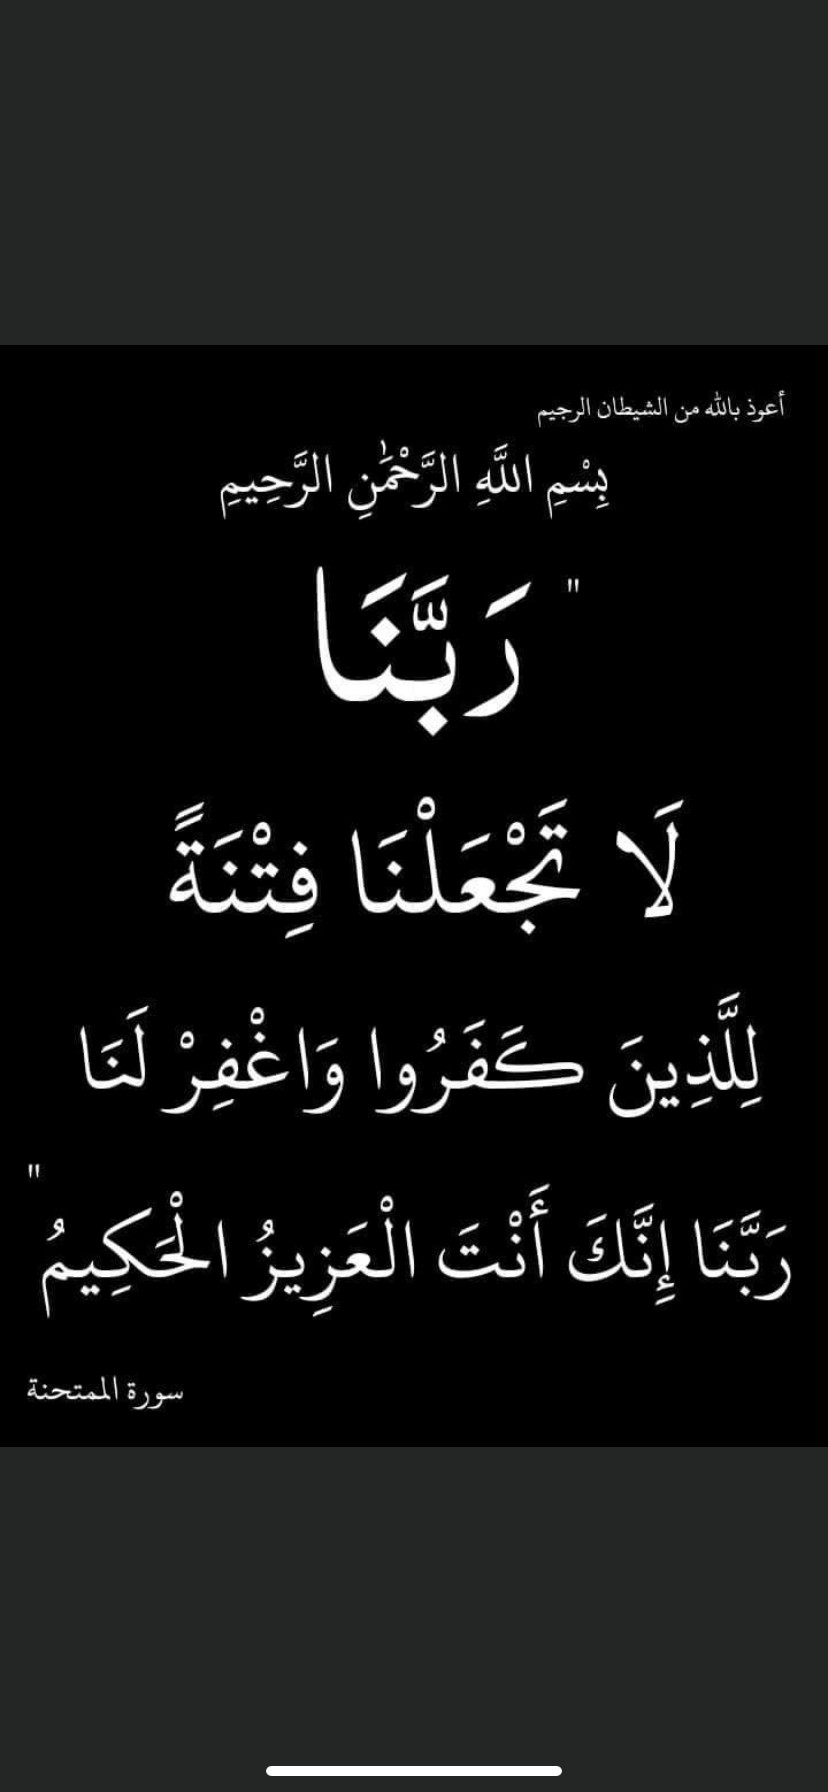 أعوذ بالله من الشيطان الرجيم
بِسْمِ اللَّهِ الرَّحْمَٰنِ الرَّحِيمِ
" رَبَّنَا
لَا تَجْعَلْنَا فِتْنَةً
لِلَّذِينَ كَفَرُوا وَاغْفِرْ لَنَا
رَبَّنَا إِنَّكَ أَنْتَ الْعَزِيزُ الْحَكِيمُ "
سورة الممتحنة